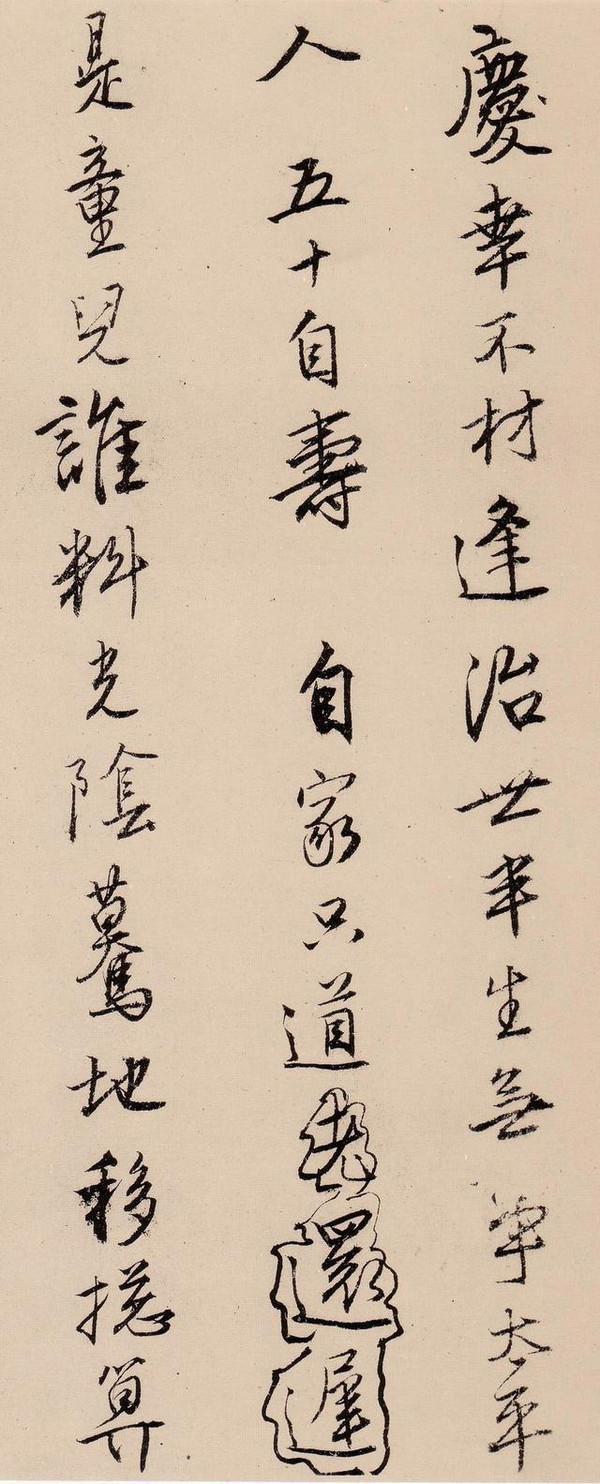 慶幸不材逢治世半生無事太平
人 五十自壽 自家只道老還遲
是童兒誰料光陰驀地移揔算